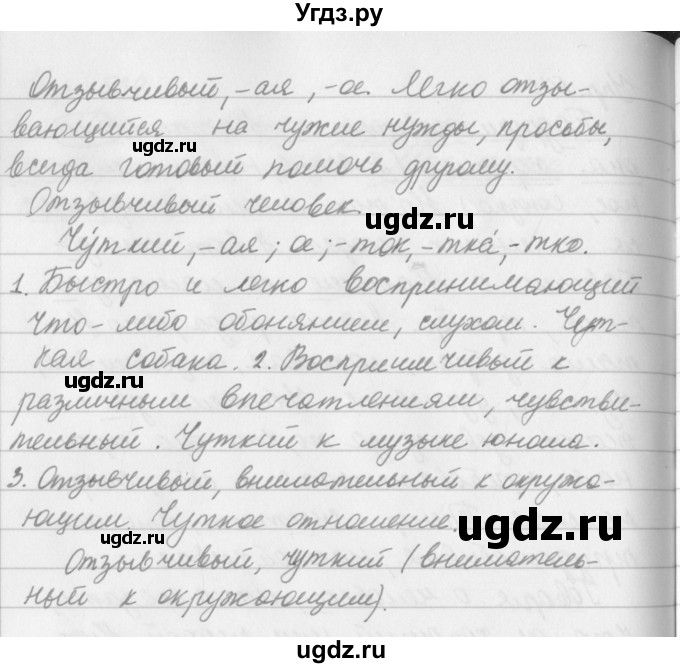 Угдз.ру
Отзывчивый, -ая, -о. Легко отзы-
вающийся на чужие нужды, просьбы,
ugdz.ru
всегда готовый помочь другому.
Отзывчивый человек.
ugdz.ru
Чу́ткий, -ая; о; -ток, -тка́, -тко.
1. Быстро и легко воспринимающий
что-либо обонянием, слухом. Чут-
кая собака. 2. Восприимчивый к
ugdz.ru
различным впечатлениям, чувстви-
тельный. Чуткий к музыке юноша.
3. Отзывчивый, внимательный к окружа-
ющим. Чуткое отношение.
ugdz.ru
ugdz.ru
Отзывчивый, чуткий (вниматель-
ный к окружающим).
ugdz.ru